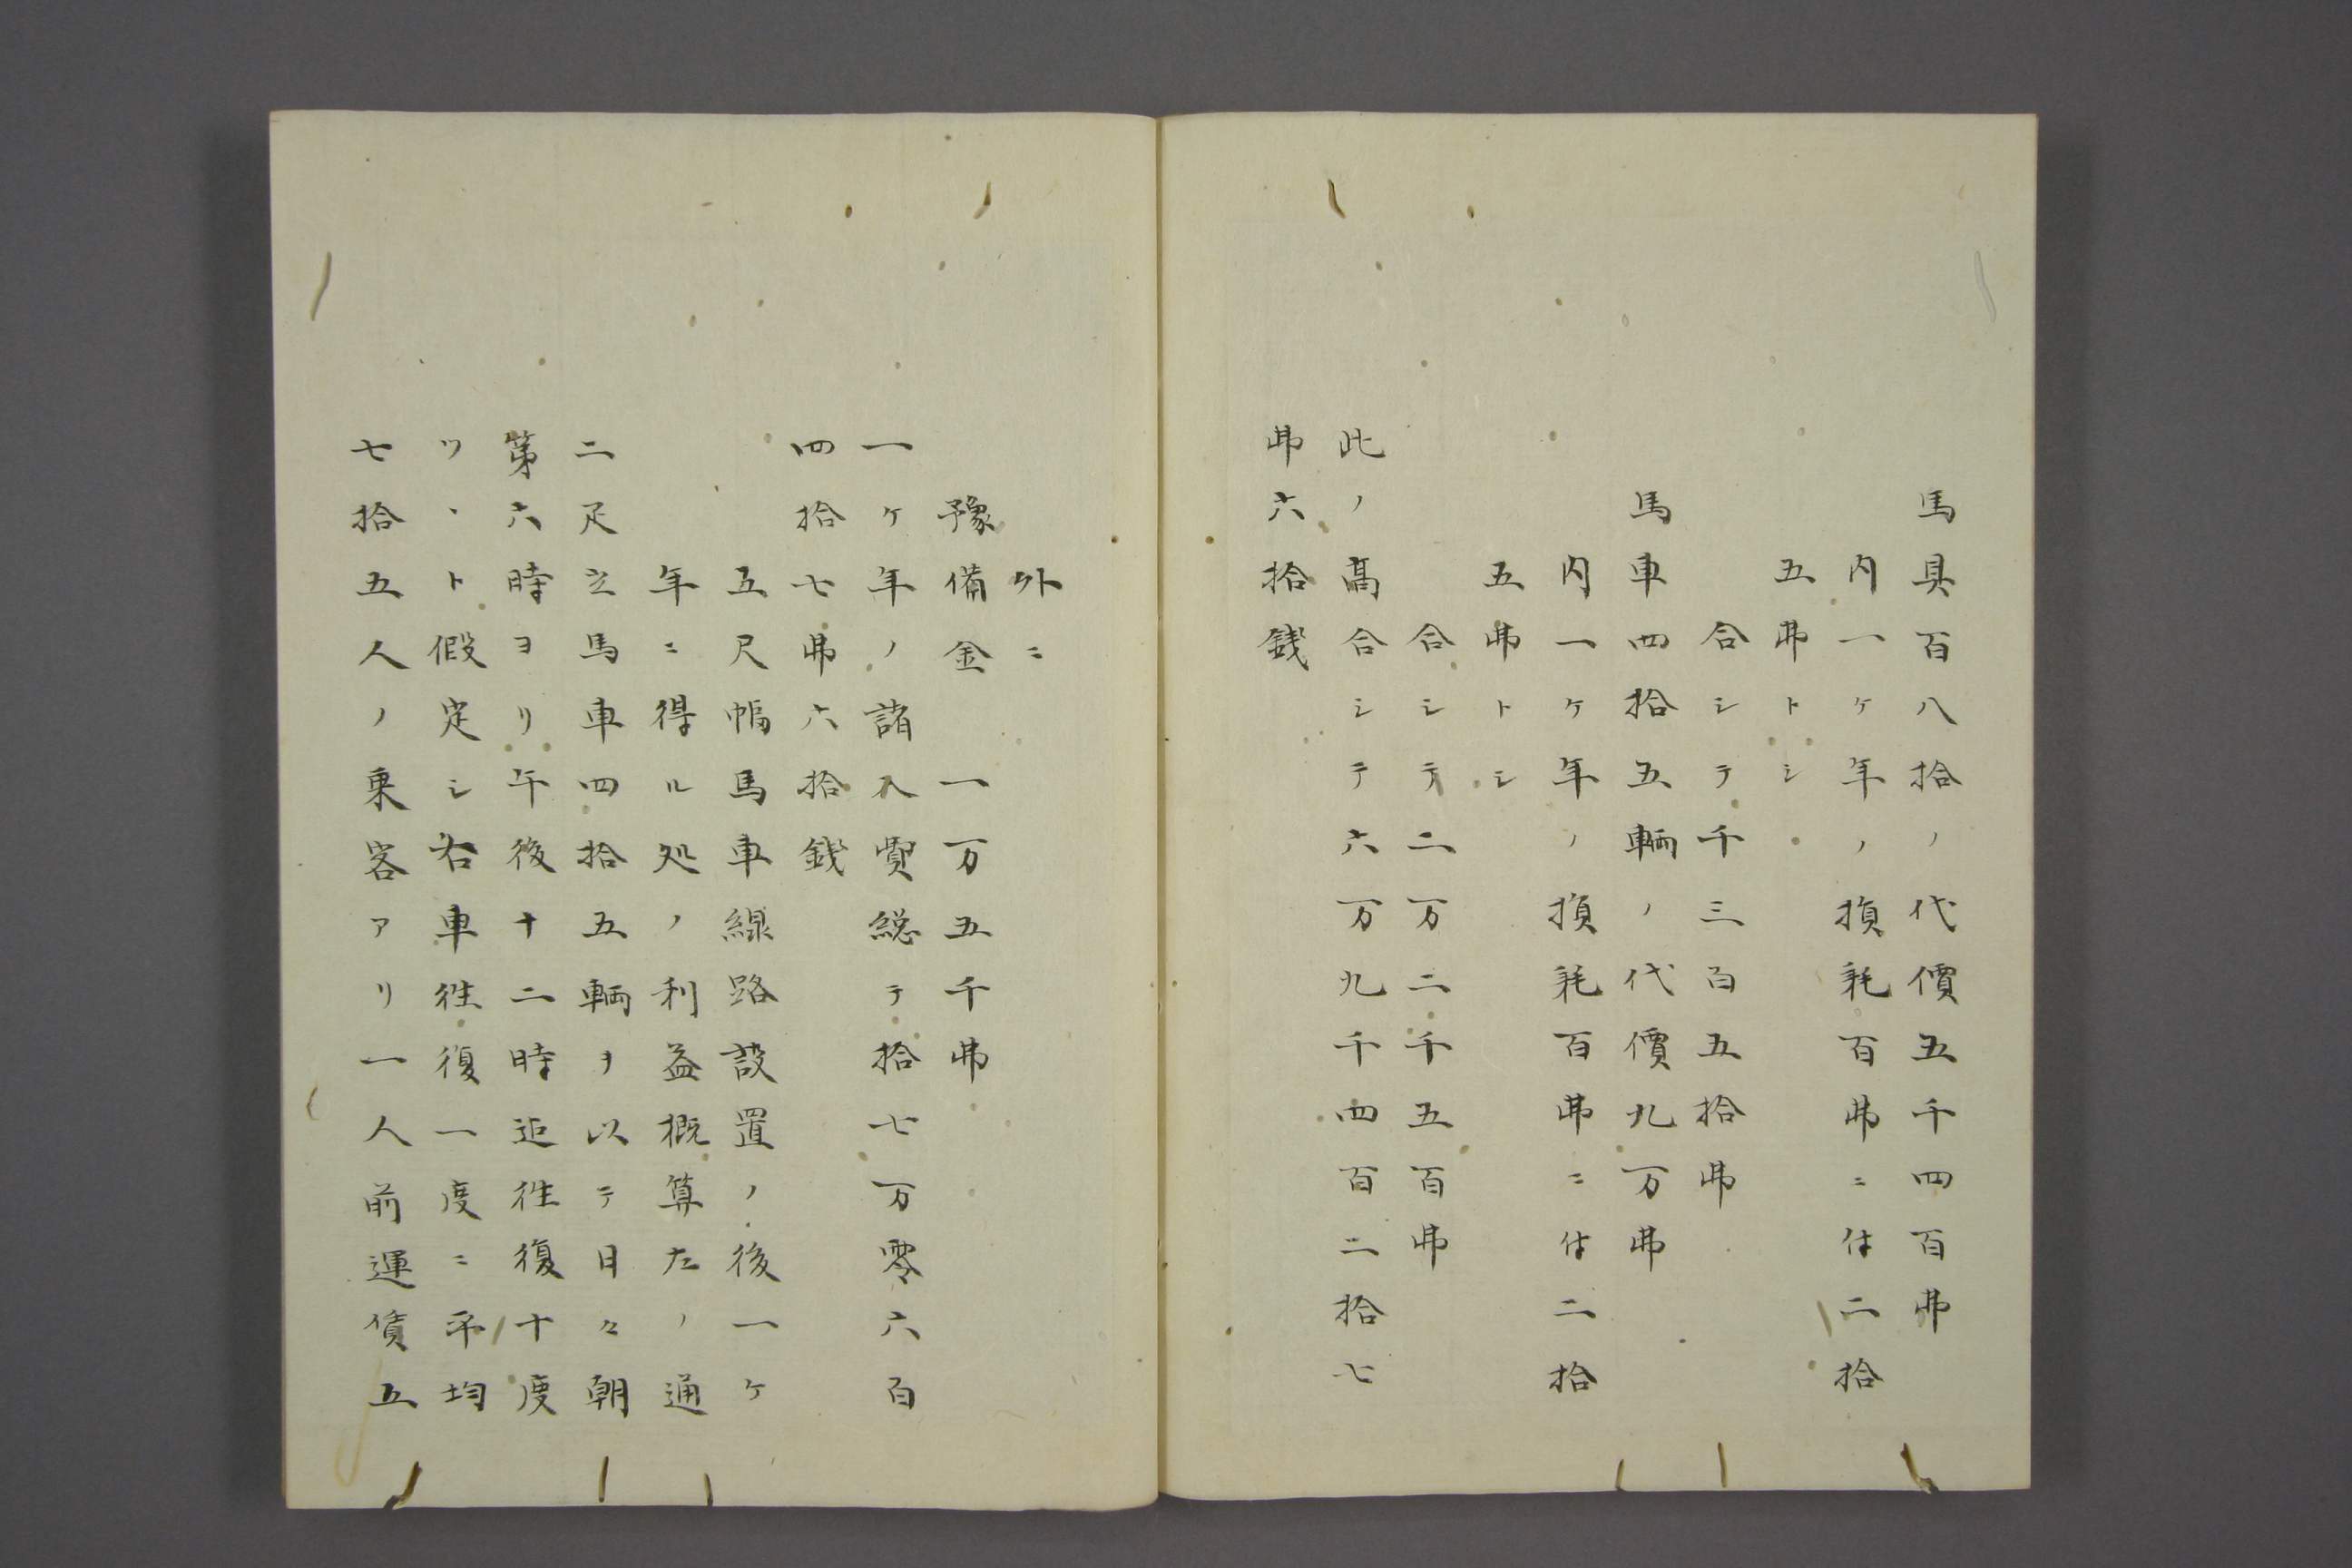 馬具百八拾ノ代價五千四百弗
内一ヶ年ノ損耗百弗ニ付二拾
五弗トシ
合シテ千三百五拾弗
馬車四拾五輌ノ代價九万弗
内一ヶ年ノ損耗百弗ニ付二拾
五弗トシ
合シテ二万二千五百弗
此ノ高合シテ六万九千四百二拾七
弗六拾銭
外ニ
豫備金 一万五千弗
一ヶ年ノ諸入費総テ拾七万零六百
四拾七弗六拾銭
五尺幅馬車線路設置ノ後一ヶ
年ニ得ル処ノ利益概算左ノ通
二疋立馬車四拾五輌ヲ以テ日々朝
第六時ヨリ午後十二時迠徃復十度
ツヽト假定シ右車徃復一度ニ平均
七拾五人ノ乗客アリ一人前運賃五